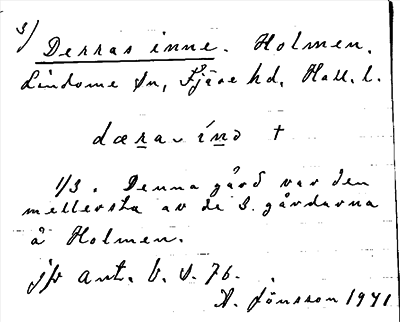 3/
Derras inne. Holmen.
Lindome Sn, Fjäre hd, Hall. l.
dæra- ínə +
1/3. Denna gård var den
mellersta av de 3. gårdarna
å Holmen.
jfr ant. b. s. 76.
A. Jönsson 1941